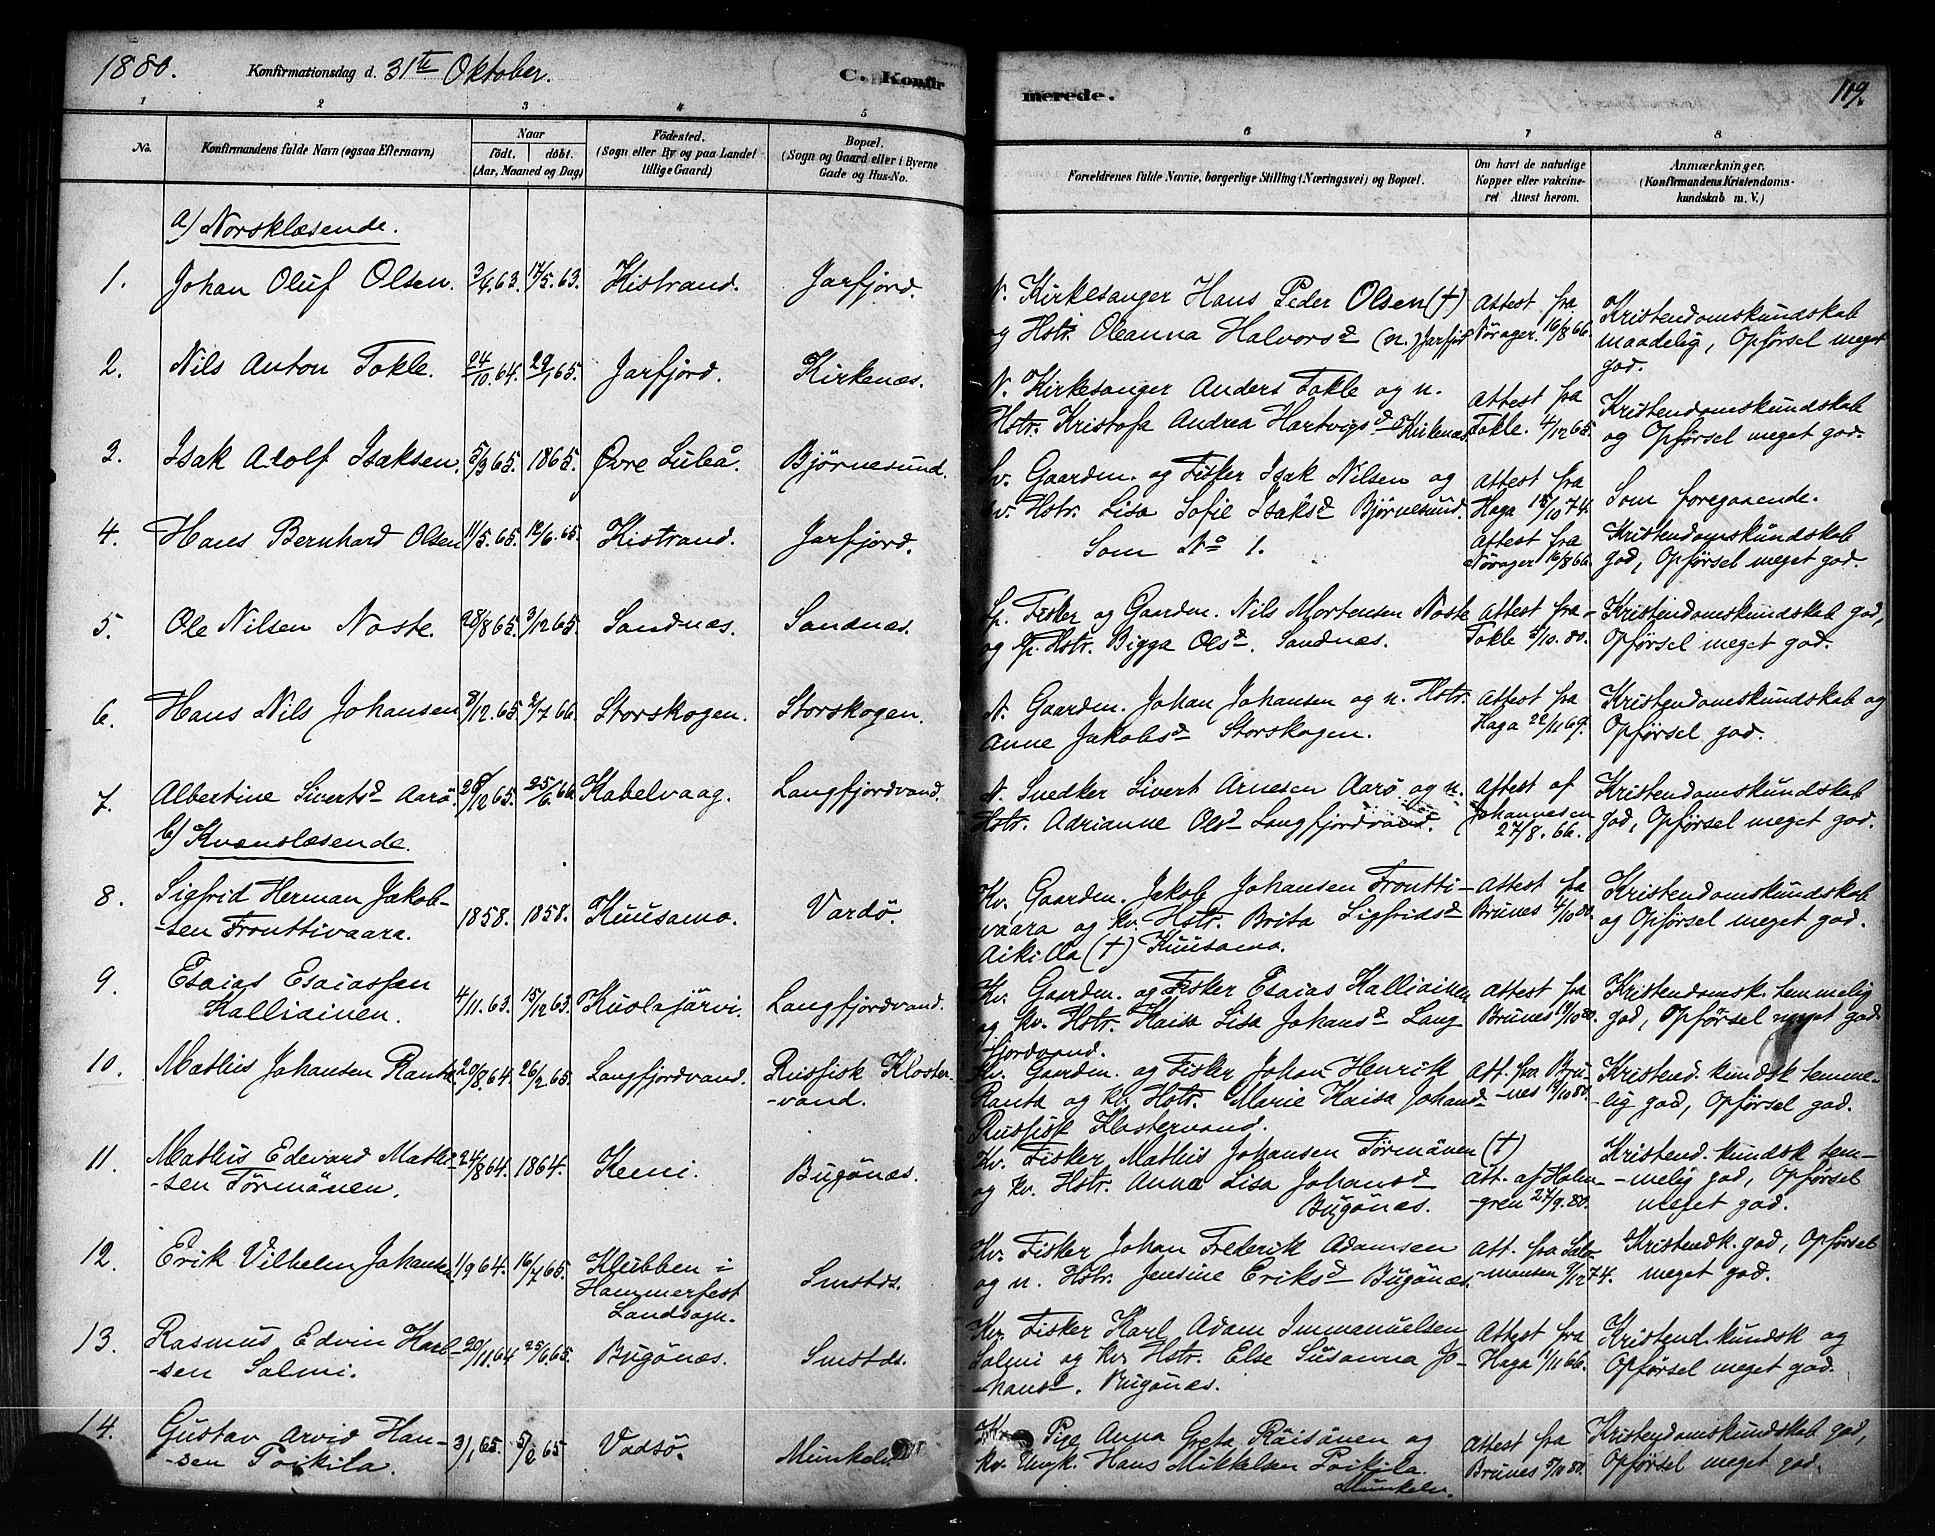 1880. Konfirmationsdag d. 31te Oktober. C. Konfirmerede. 119.
1 2 3 4 5 6 7 8
No. Konfirmandens fulde Navn (ogsaa Efternavn)
Naar født. døbt. (Aar, Maaned og Dag)
Fødested. (Sogn eller By og paa Landet tillige Gaard)
Bopæl. (Sogn og Gaard eller i Byerne Gade og Hus-No.
Forældrenes fulde Navne, borgerlige Stilling (Næringsvei) og Bopæl.
Om havt de naturlige Kopper eller vakcineret Attest herom.
Anmærkninger. (Konfirmandens Kristendomskundskab m. V.)
a) Norsklæsende.
1. Johan Oluf Olsen. 3/4.63. 17/5.63. Kistrand. Jarfjord.
N. Kirkesanger Hans Peder Olsen (†)
og Hstr. Oleanna Halvorsd (n.) Jarfjd
Attest fra
Nørager. 16/8 66.
Kristendomskundskab
maadelig, Opførsel meget
god.
2. Nils Anton Tokle. 24/10.64. 29/1 65. Jarfjord. Kirkenæs.
N. Kirkesanger Anders Tokle og n.
Hstr. Kristofa Andrea Hartvigsd Kirkenæs.
Attest fra
Tokle. 4/12 65.
Kristendomskundskab
og Opførsel meget god.
3. Isak Adolf Isaksen. 5/3 65. 1865. Øvre Luleå. Bjørnesund.
Sv. Gaardm. og Fisker Isak Nilsen og
sv. Hstr. Lisa Sofie Isaksd Bjørnesund.
Attest fra
Haga 15/10 74.
Som foregaaende.
4. Hans Bernhard Olsen 11/5.65. 12/6.65. Kistrand. Jarfjord.
Som No 1.
Attest fra
Nørager 16/8 66.
Kristendomskundskab
god, Opførsel meget god.
5. Ole Nilsen Noste. 28/8 65. 3/12 65. Sandnæs. Sandnæs.
Lp. Fisker og Gaardm. Nils Mortensen Noste
og lp. Hstr. Bigga Olsd. Sandnæs.
Attest fra
Tokle 3/10.80.
Kristendomskundskab god,
Opførsel meget god.
6. Hans Nils Johansen 8/12.65. 2/7 66. Storskogen. Storskogen.
N. Gaardm. Johan Johansen og n. Hstr.
Anne Jakobsd Storskogen.
Attest fra
Haga 22/11 69.
Kristendomskundskab og
Opførsel god.
7. Albertine Sivertsd Aarø 28/12 65. 25/6.66. Kabelvaag. Langfjordvand.
N. Snedker Sivert Arnesen Aarø og n.
Hstr. Adrianne Olsd Langfjordvand.
Attest af
Johannesen
27/8. 66.
Kristendomskundskab
god, Opførsel meget god.
b) Kvænslæsende.
8. Sigfrid Herman Jakob-
-sen Fronttivaara. 1858. 1858. Kuusamo. Vardø.
Kv. Gaardm. Jakob Johansen Frontti-
vaara og kv. Hstr. Brita Sigfridsd
Aikilla (†) Kuusamo.
Attest fra
Brunes 4/10 80.
Kristendomskundskab
og Opførsel meget god.
9. Esaias Esaiassen
Kalliainen. 4/11.63. 15/12 63. Kuolajärvi. Langfjordvand.
Kv. Gaardm. og Fisker Esaias Kalliainen
og kv. Hstr. Kaisa Lisa Johansd Lang
-fjordvand.
Attest fra
Brunes 18/10 80.
Kristendomsk. temmelig
god, Opførsel meget god.
10. Mathis Johansen Ranta. 20/8.64. 26/2.65. Langfjordvand. Russisk Kloster-
-vand.
Kv. Gaardm. og Fisker Johan Henrik
Ranta og kv. Hstr. Marie Kaisa Johansd
Russisk Klostervand.
Att. fra Bru-
-nes 18/10 80.
Kristend. kundsk temme-
-lig god, Opførsel god.
11. Mathis Edevard Mathi-
-sen Törmänen. 24/8 64. 1864. Kemi. Bugønæs.
Kv. Fisker Mathis Johansen Törmänen (†)
og kv. Hstr. Anna Lisa Johansd
Bugønæs.
Att. af Holm-
-gren 27/9.80.
Kristend. kundsk tem-
-melig god, Opførsel
meget god.
12. Erik Vilhelm Johansen 1/9 64. 16/7 65. Klubben i
Hammerfest
Landsogn. Smstds.
Kv. Fisker Johan Frederik Adamsen
og n. Hstr. Jensine Eriksd Bugønæs.
Att. fra Salo-
-monsen 3/12 74.
Kristendk. god, Opførsel
meget god.
13. Rasmus Edvin Karl-
-sen Salmi. 20/11.64 25/6.65. Bugønæs. Smstds.
Kv. Fisker Karl Adam Immanuelsen
Salmi og kv Hstr. Else Susanna Jo-
-hansd. Bugønæs.
Attest fra
Haga 1/11 66.
Kristend. kundsk og
Opførsel meget god.
14. Gustav Arvid Han-
-sen Poikila. 3/1 65. 5/2 65 Vadsø. Munkelv
Pige Anna Greta Räisänen og
kv. Ungk. Hans Mikkelsen Poikila.
Munkelv.
Attest fra
Brunes 5/10 80.
Kristendomskundskab god,
Opførsel meget god.